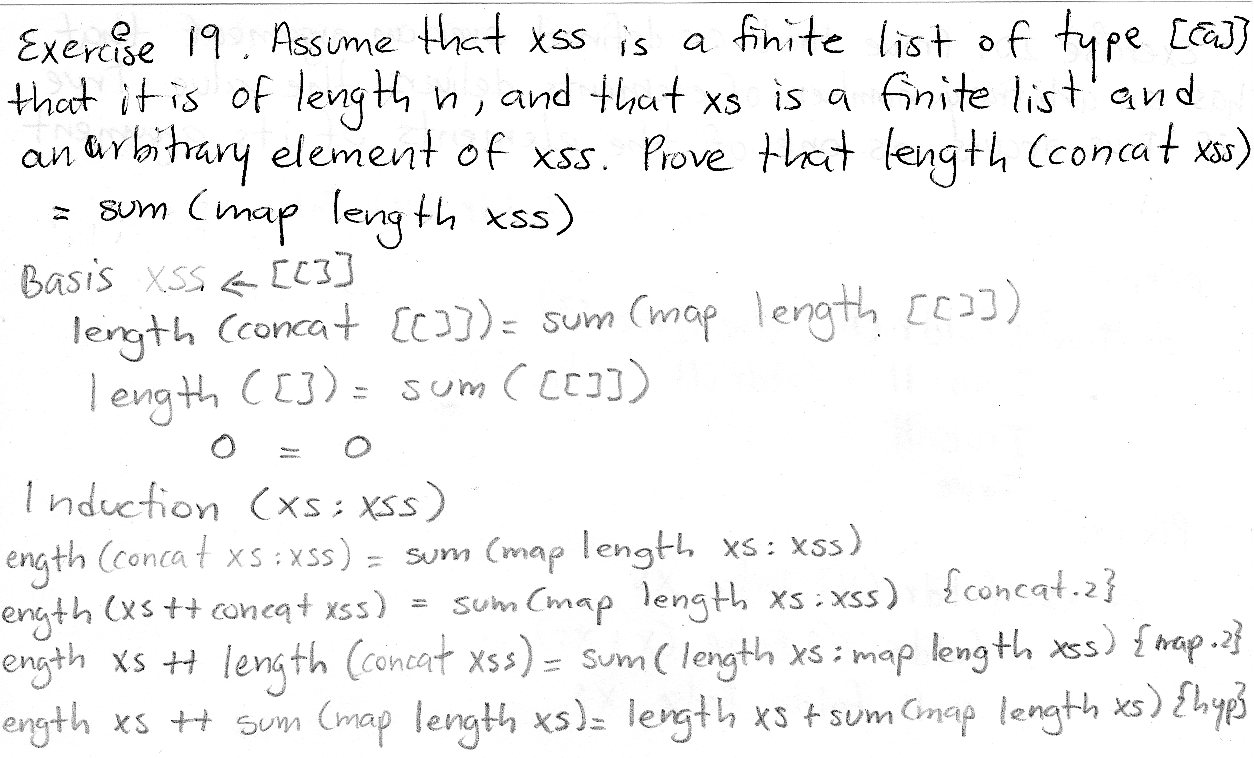 Exercise 19. Assume that xss is a finite list of type [[a]]
that it is of length n, and that xs is a finite list and
an arbitrary element of xss. Prove that length (concat xss)
= sum (map length xss)
Basis xss ← [[]]
length (concat [[]]) = sum (map length [[]])
length ([]) = sum ([[]])
0 = 0
Induction (xs : xss)
ength (concat xs : xss) = sum (map length xs : xss)
ength (xs ++ concat xss) = sum (map length xs : xss) {concat.2}
ength xs ++ length (concat xss) = sum (length xs : map length xss) {map.2}
ength xs ++ sum (map length xs) = length xs + sum (map length xs) {hyp}